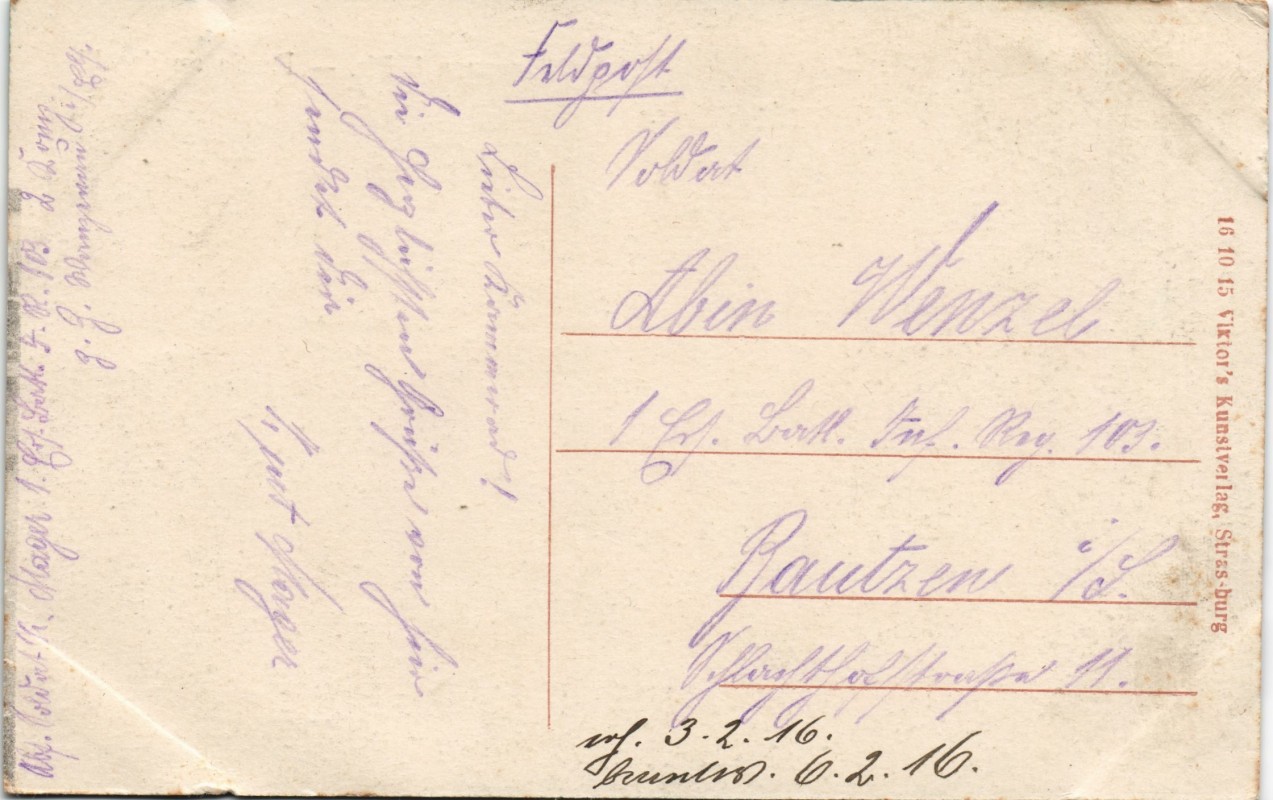 Feldpost
Soldat
Albin Wenzel
1 Ers. Batl. Inf. Reg. 103.
Bautzen i/S.
Schlachthofstraße 11.
erh. 3. 2. 16.
beantw. 6. 2. 16.
Lieber Kammerad!
Die herzlichsten Grüße von hier
sendet dir
Mager
Abs. Soldat K. Mager 1. Ers. Batl. I. R. 103 2 Komp.
z. Z.
16 10 15 Viktor's Kunstverlag, Strassburg